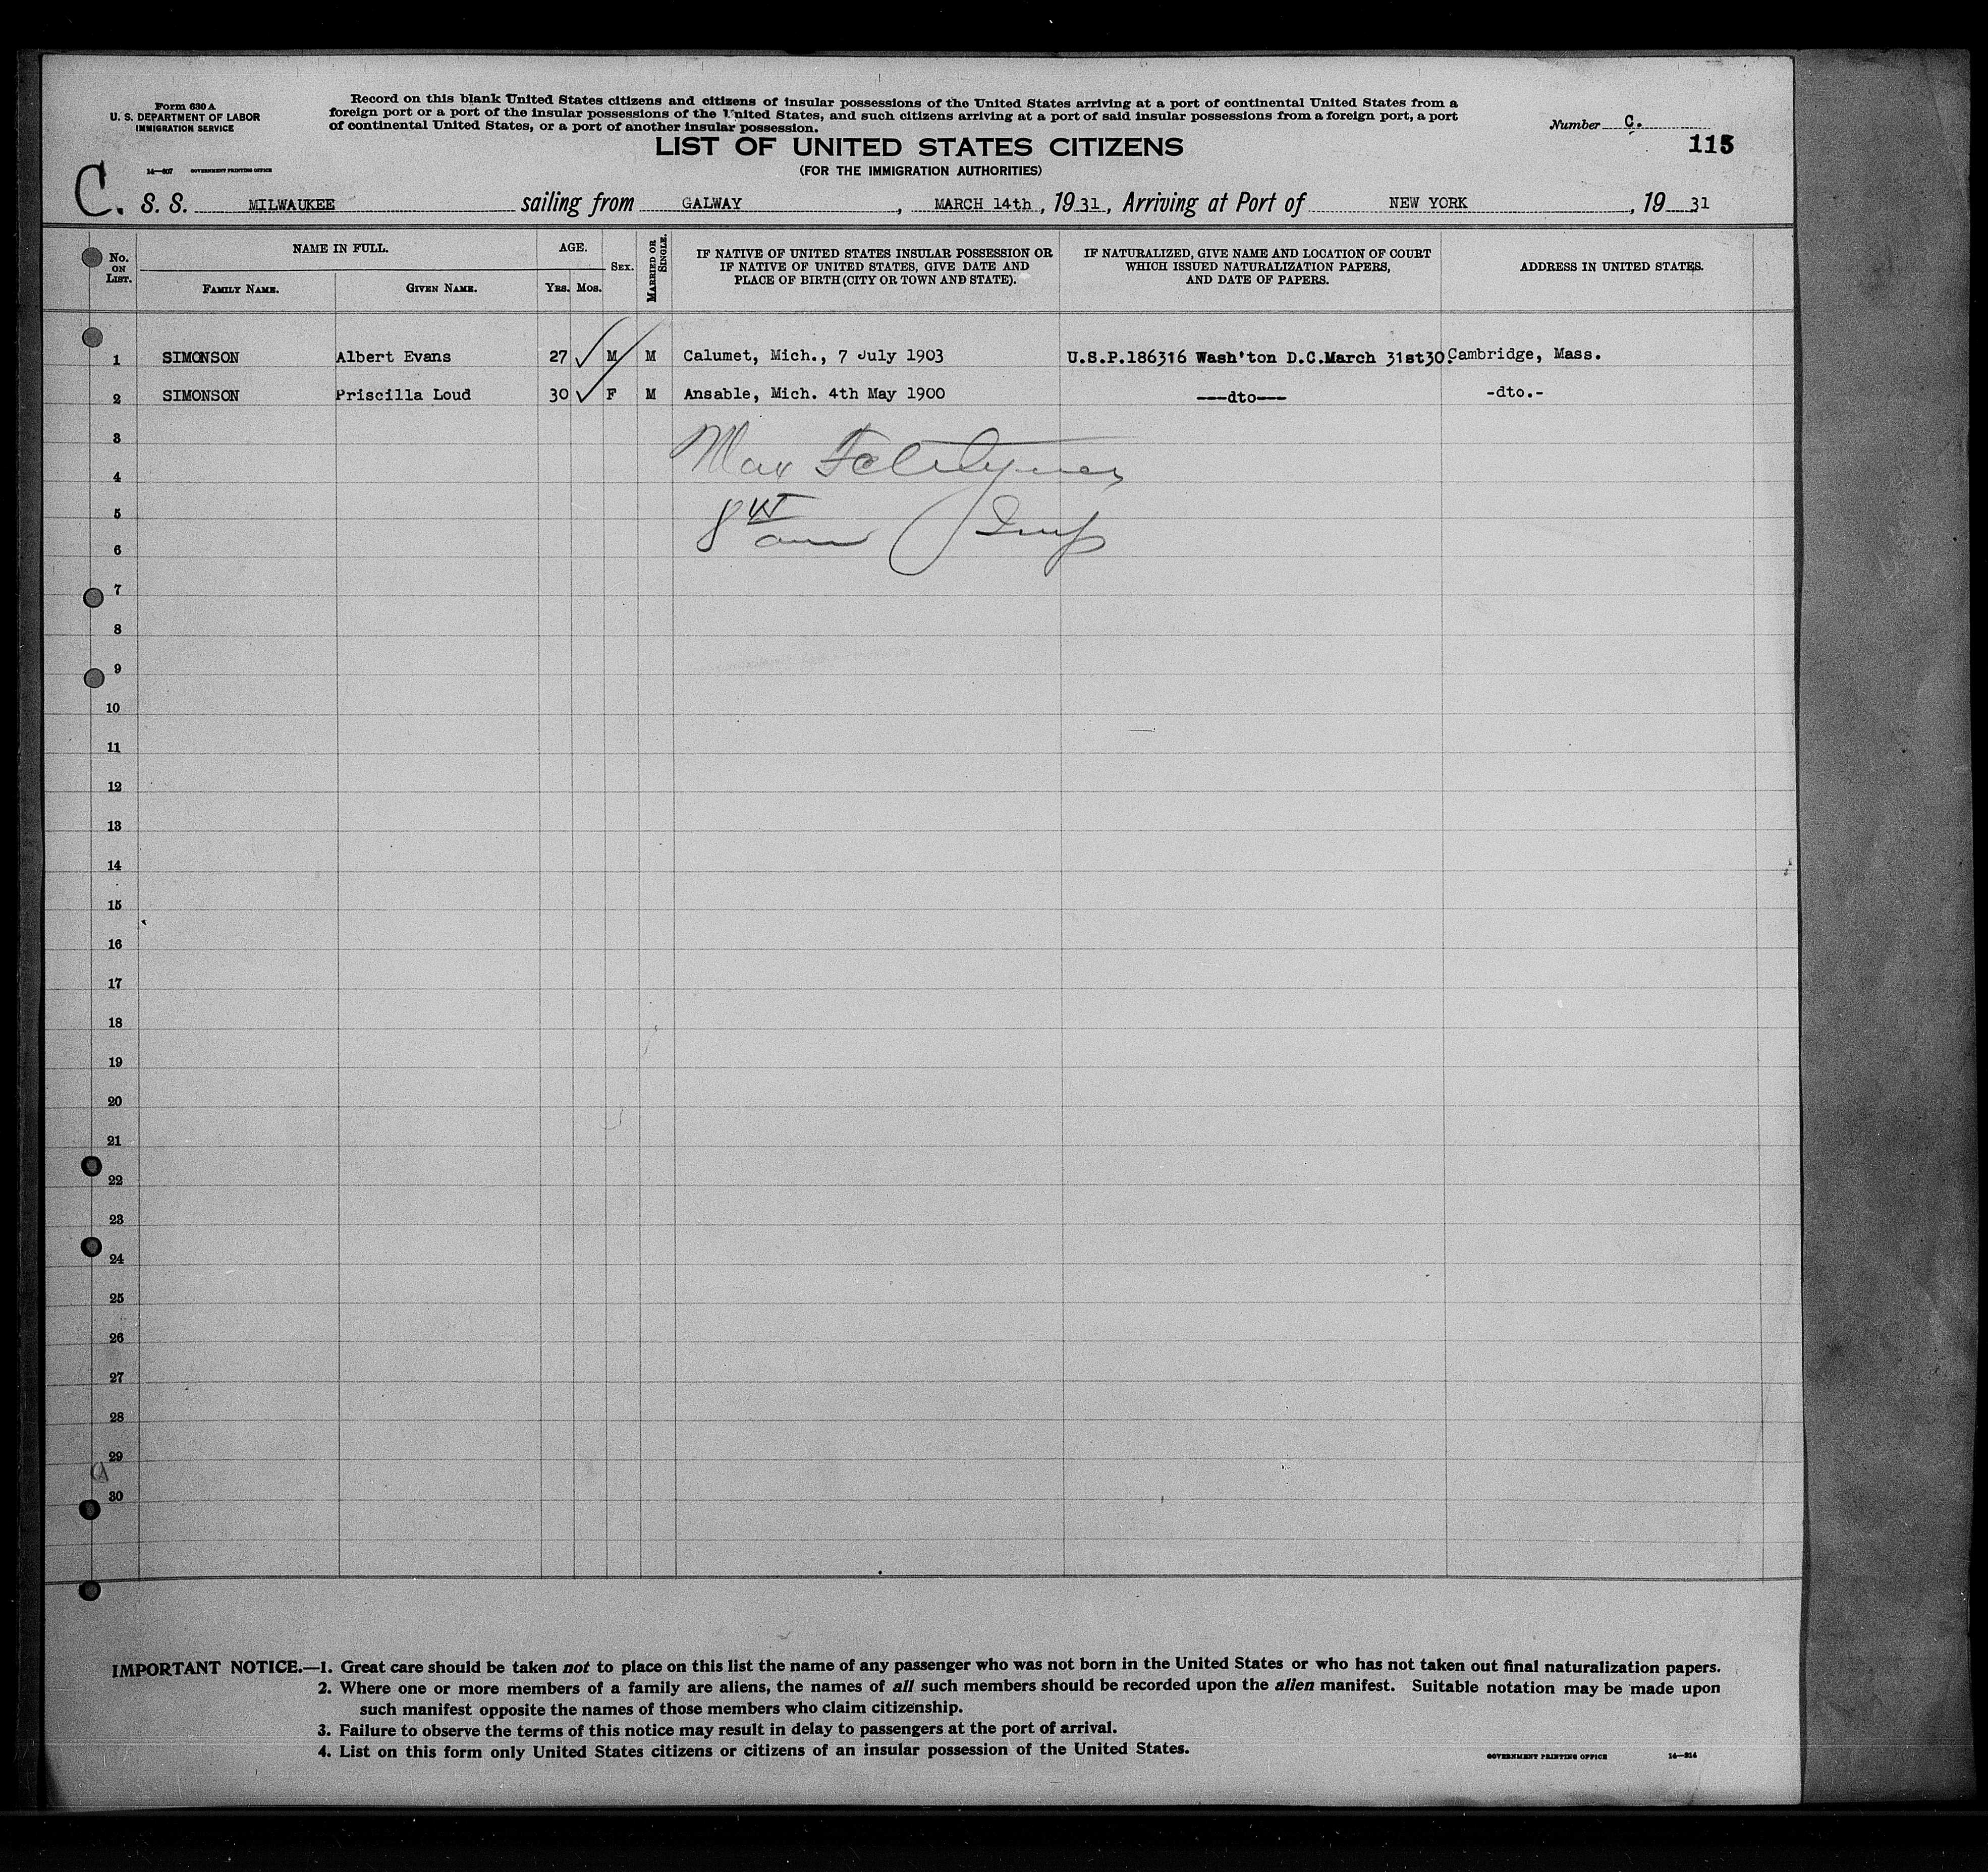 Form 630 A
U. S. DEPARTMENT OF LABOR
IMMIGRATION SERVICE
14—607 GOVERNMENT PRINTING OFFICE
Record on this blank United States citizens and citizens of insular possessions of the United States arriving at a port of continental United States from a
foreign port or a port of the insular possessions of the United States, and such citizens arriving at a port of said insular possessions from a foreign port, a port
of continental United States, or a port of another insular possession.
Number C.
115
LIST OF UNITED STATES CITIZENS
(FOR THE IMMIGRATION AUTHORITIES)
C. S. S. MILWAUKEE sailing from GALWAY, MARCH 14th, 1931, Arriving at Port of NEW YORK, 19 31
No. ON LIST.
NAME IN FULL.
FAMILY NAME. GIVEN NAME.
AGE.
YRS. MOS.
SEX.
MARRIED OR SINGLE.
IF NATIVE OF UNITED STATES INSULAR POSSESSION OR
IF NATIVE OF UNITED STATES, GIVE DATE AND
PLACE OF BIRTH (CITY OR TOWN AND STATE).
IF NATURALIZED, GIVE NAME AND LOCATION OF COURT
WHICH ISSUED NATURALIZATION PAPERS,
AND DATE OF PAPERS.
ADDRESS IN UNITED STATES.
1 SIMONSON Albert Evans 27 M M Calumet, Mich., 7 July 1903 U.S.P.186316 Wash'ton D.C.March 31st30. Cambridge, Mass.
2 SIMONSON Priscilla Loud 30 F M Ansable, Mich. 4th May 1900 ---dto--- -dto.-
3
Max
4
5
8
Insp
6
7
8
9
10
11
12
13
14
15
16
17
18
19
20
21
22
23
24
25
26
27
28
29
30
IMPORTANT NOTICE.—1. Great care should be taken not to place on this list the name of any passenger who was not born in the United States or who has not taken out final naturalization papers.
2. Where one or more members of a family are aliens, the names of all such members should be recorded upon the alien manifest. Suitable notation may be made upon
such manifest opposite the names of those members who claim citizenship.
3. Failure to observe the terms of this notice may result in delay to passengers at the port of arrival.
4. List on this form only United States citizens or citizens of an insular possession of the United States.
GOVERNMENT PRINTING OFFICE 14—214